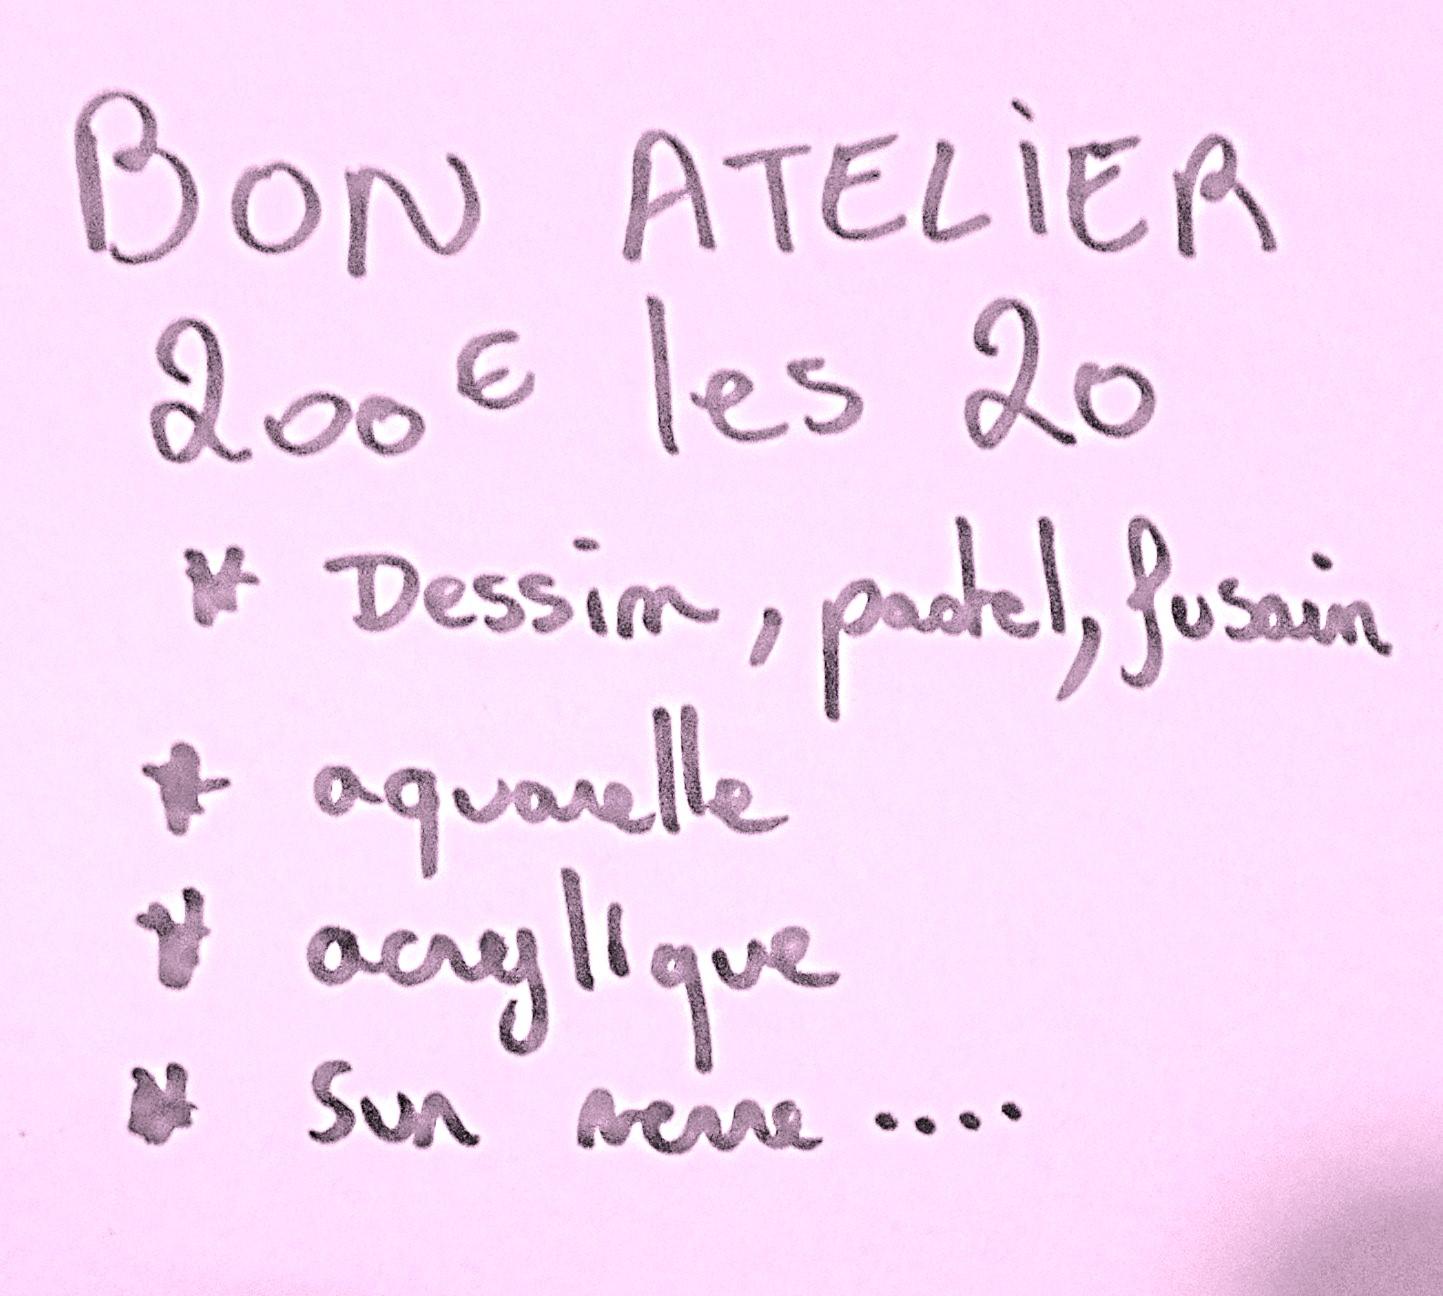 BON ATELIER
200€ les 20
* Dessin, pastel, fusain
* aquarelle
* acrylique
* Sur verre ....